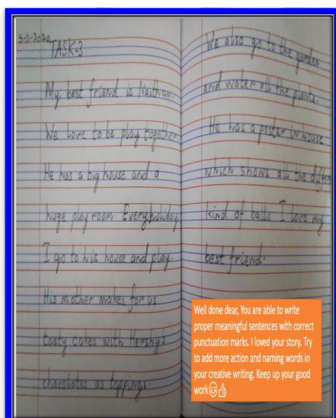 5-11-2020
TASK-3
My best friend is
We love to be play together
He has a big house and a
huge play room Everyholiday
I go to his house and play.
His mother makes for us
tasty cakes with Hershy's
chocolates as toppings.
We also go to the garden
and water all the plants.
He has a poster in house
which shows all the different
kind of balls I love my
best friend.
Well done dear, You are able to write
proper meaningful sentences with correct
punctuation marks. I loved your story. Try
to add more action and naming words in
your creative writing. Keep up your good
work